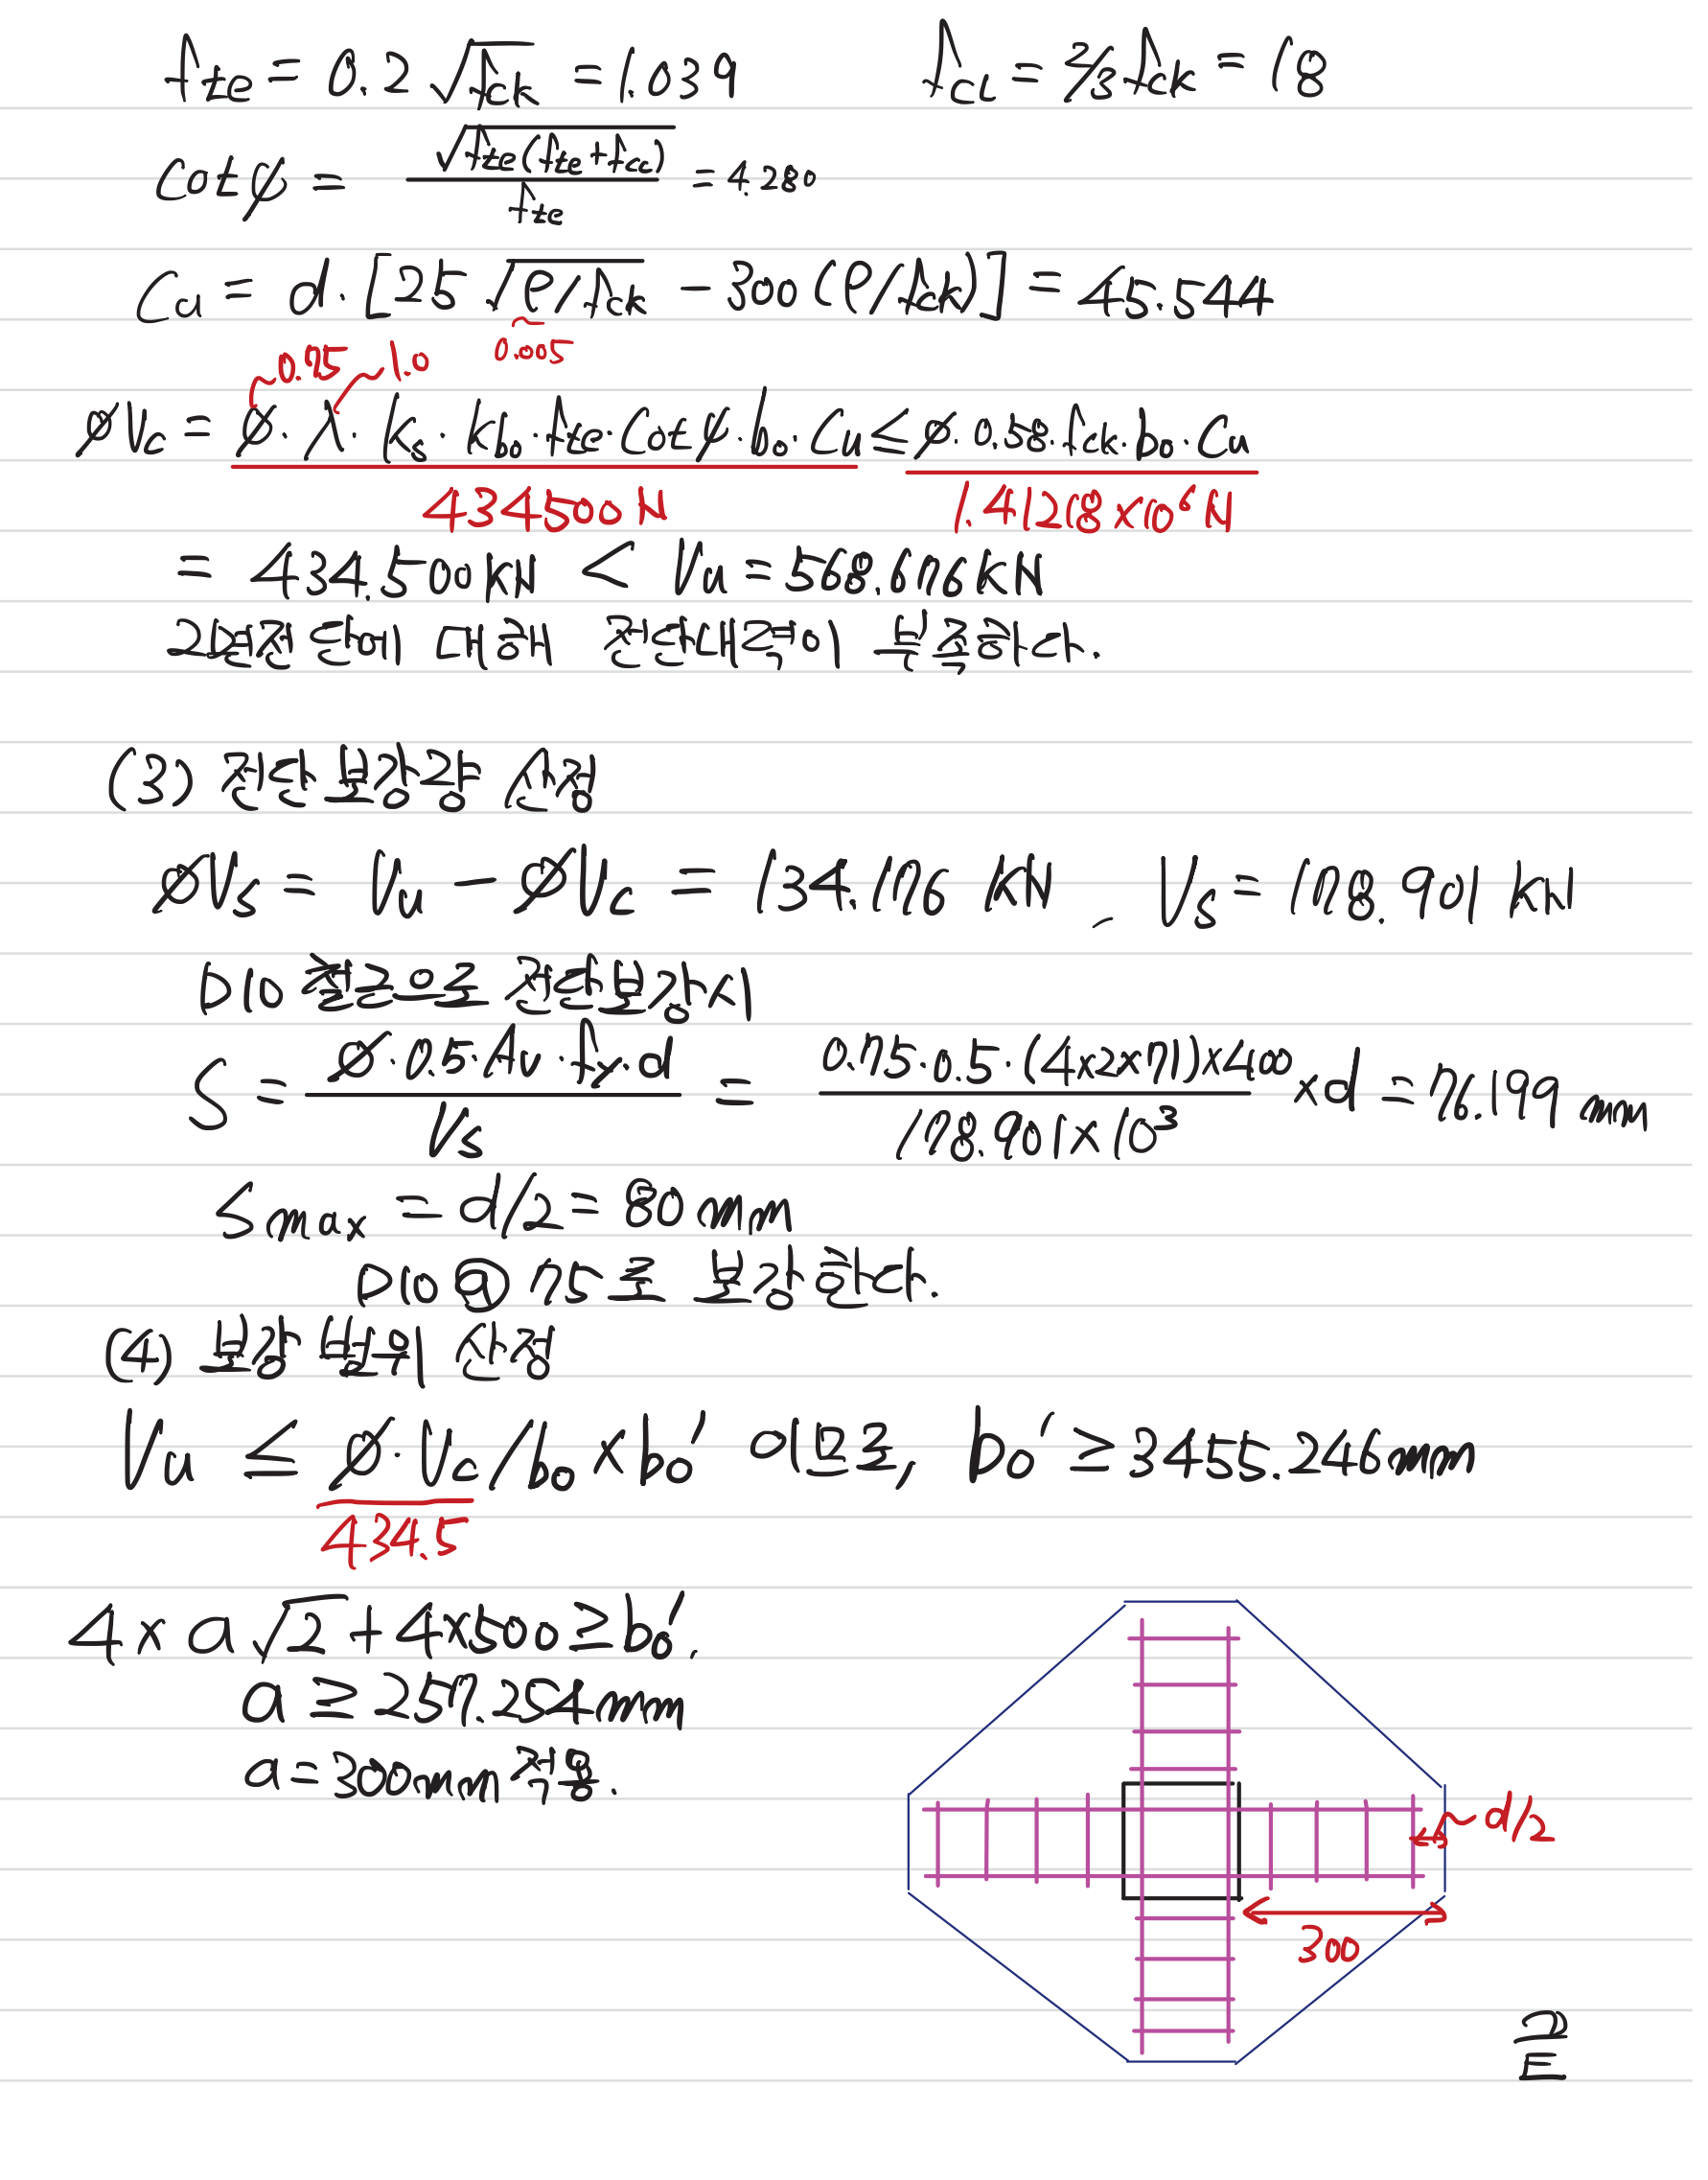 fte = 0.2 √fck = 1.039    fcc = 2/3 fck = 18
cotψ = √fte(fte+fcc) / fte = 4.280
Cu = d · [25 √ρ/fck - 300 (ρ/fck)] = 45.544
0.75 1.0 0.005
φVc = φ · λ · ks · kbo · fte · cotψ · bo · Cu ≤ φ · 0.58 · fck · bo · Cu
434500 N    1.41218 × 10⁶ N
= 434.500 kN < Vu = 568.676 kN
2면전단에 대해 전단내력이 부족하다.
(3) 전단 보강량 산정
φVs = Vu - φVc = 134.176 kN, Vs = 178.901 kN
D10 철근으로 전단보강시
S = φ · 0.5 · Av · fy · d / Vs = 0.75 · 0.5 · (4×2×71) × 400 / 178.901 × 10³ × d = 76.199 mm
Smax = d/2 = 80 mm
D10 @ 75로 보강한다.
(4) 보강 범위 산정
Vu ≤ φ · Vc / bo × bo' 이므로, bo' ≥ 3455.246 mm
434.5
4 × a√2 + 4×500 ≥ bo'.
a ≥ 257.254 mm
a = 300 mm 적용.
d/2
300
끝